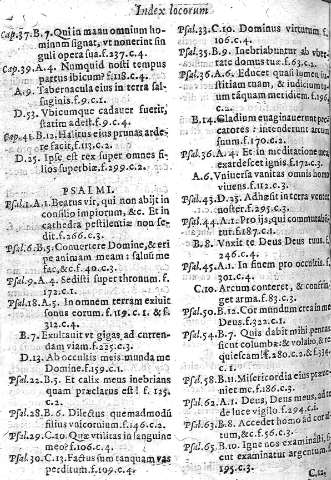 Index locorum
Cap.37.B.7. Qui in manu omnium ho-
minum signat, vt nouerint sin
guli opera sua.f.237.c.4.
Cap.39.A.4. Numquid nosti tempus
partus ibicum? f.118.c.4.
A.9. Tabernacula eius in terra sal-
suginis.f.9.c.1.
D.53. Vbicumque cadauer fuerit,
statim adest.f.9.c.4.
Cap.41.B.12. Halitus eius prunas arde-
re facit,f.113.c.2.
D.25. Ipse est rex super omnes fi-
lios superbiæ.f.299.c.2.
PSALMI.
Psal.1.A.1. Beatus vir, qui non abijt in
consilio impiorum, &c. Et in
cathedra pestilentiæ non se-
dit.f.266.c.3.
Psal.6.B.5. Conuertere Domine, & eri
pe animam meam: saluũ me
fac, &c.f.40.c.3.
Psal.9.A.4. Sedisti super thronum. f.
172.c.1.
Psal.18.A.5. In omnem terram exiuit
sonus eorum. f.119.c.1. &f.
312.c.4.
B.7. Exultauit vt gigas ad curren-
dam viam.f.225.c.3.
D.13. Ab occultis meis munda me
Domine.f.159.c.1.
Psal.22.B.5. Et calix meus inebrians
quam præclarus est! f. 125.
c.2.
Psal.28.B.6. Dilectus quemadmodũ
filius vnicornium.f.146.c.2.
Psal.29.C.10. Quæ vtilitas in sanguine
meo? f.106.c.4.
Psal.30.C.13. Factus sum tanquam vas
perditum.f.109.c.4.
Psal.33.C.10. Dominus virtutum f.
106.c.4.
Psal.35.B.9. Inebriabuntur ab vber-
tate domus tuæ.f.63.c.2.
Psal.36.A.6. Educet quasi lumen iu-
stitiam tuam, & iudicium tu-
um tãquam meridiem.f.196.
B.14. Gladium euaginauerunt pec-
catores: intenderunt arcum
suum.f.170.c.2.
A.4. Et in meditatione mea
exardescet ignis.f.172.c.3.
A.6. Vniuersa vanitas omnis homo
viuens.f.112.c.3.
Psal.43.D.25. Adhæsit in terra venter
noster.f.295.c.3.
Psal.44.A.1. Pro ijs, qui commutabũ-
tur.f.187.c.1.
B.8. Vnxit te Deus Deus tuus. f.
246.c.4.
Psal.45.A.1. In finem pro occultis. f.
301.c.4.
C.10. Arcum conteret, & confrin-
get arma.f.83.c.3.
Psal.50.B.12. Cor mundum crea in me
Deus.f.322.c.1.
Psal.54.B.7. Quis dabit mihi pennas
sicut columbæ: & volabo, & re-
quiescam? f.280.c.2.
Psal.58.B.11. Misericordia eius præue-
niet me.f.186.c.3.
Psal.62.A.1. Deus, Deus meus, ad te
de luce vigilo.f.294.c.1.
Psal.63.B.8. Accedet homo ad cor al-
tum, &c.f.56.c.3.
Psal.65.B.10. Igne nos examinasti, si-
cut examinatur argentum. f.
195.c.3.
C.12.